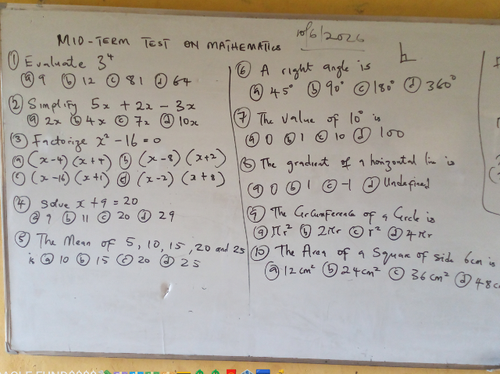 MID-TERM TEST ON MATHEMATICS
10/6/2026
① Evaluate 3⁴
ⓐ 9 ⓑ 12 ⓒ 81 ⓓ 64
② Simplify 5x + 2x - 3x
ⓐ 2x ⓑ 4x ⓒ 7x ⓓ 10x
③ Factorize x² - 16 = 0
ⓐ (x-4)(x+4) ⓑ (x-8)(x+2)
ⓒ (x-16)(x+1) ⓓ (x-2)(x+8)
④ Solve x + 9 = 20
ⓐ 9 ⓑ 11 ⓒ 20 ⓓ 29
⑤ The Mean of 5, 10, 15, 20 and 25
is ⓐ 10 ⓑ 15 ⓒ 20 ⓓ 25
⑥ A right angle is
ⓐ 45° ⓑ 90° ⓒ 180° ⓓ 360°
⑦ The value of 10° is
ⓐ 0 ⓑ 1 ⓒ 10 ⓓ 100
⑧ The gradient of a horizontal line is
ⓐ 0 ⓑ 1 ⓒ -1 ⓓ Undefined
⑨ The Circumference of a Circle is
ⓐ πr² ⓑ 2πr ⓒ r² ⓓ 4πr
⑩ The Area of a Square of side 6cm is
ⓐ 12cm² ⓑ 24cm² ⓒ 36cm² ⓓ 48c